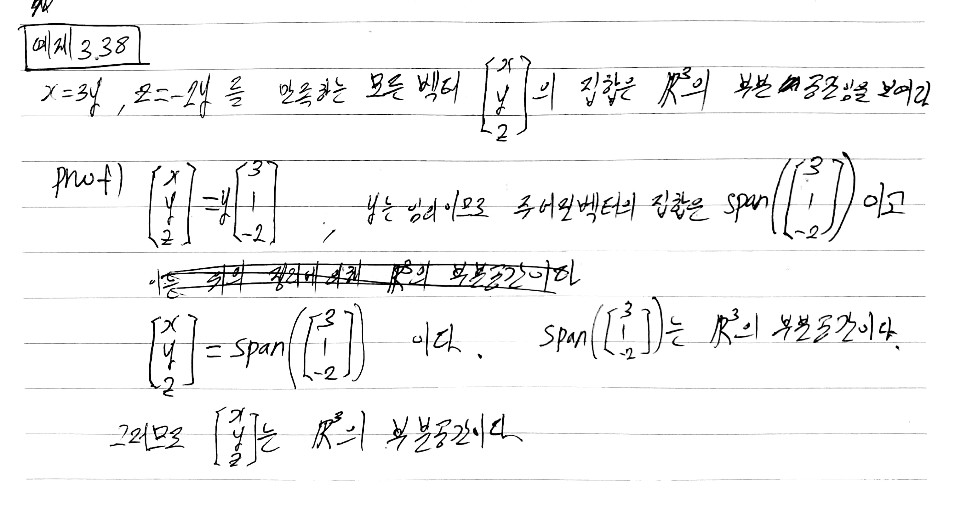 예제 3.38
x=3y, z=-2y 를 만족하는 모든 벡터 [x y z]의 집합은 ℝ³의 부분공간임을 보여라
proof) [x y z] = y[3 1 -2], y는 임의이므로 주어진벡터의 집합은 span([3 1 -2])이고
이는 위의 정리에 의해 ℝ³의 부분공간이다
[x y z] = span([3 1 -2]) 이다. span([3 1 -2])는 ℝ³의 부분공간이다.
그러므로 [x y z]는 ℝ³의 부분공간이다